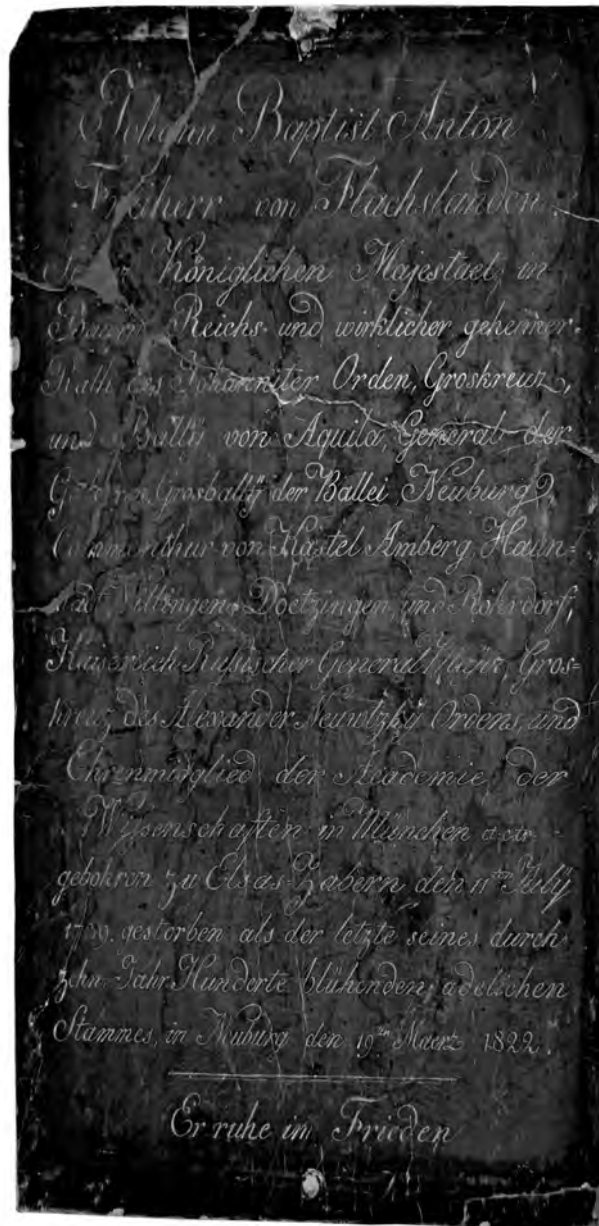 Johann Baptist Anton
Freiherr von Flachslanden.
Königlichen Majestaet in
Baiern Reichs- und wirklicher geheimer-
Rath des Johanniter Orden, Groskreuz,
und Bally von Aquila, General der
Grosballÿ der Ballei Neuburg,
Commenthur von Kastel Amberg, Haun-
stadt Villingen, Doetzingen, und Rohrdorf,
Kaiserlich Rußischer General Gros-
kreuz des Alexander Neuwtzkÿ Ordens, und
Ehrenmitglied der Academie der
Wißenschaften in München
gebohren zu Elsas-Zabern den 11ten Julÿ
1739. gestorben als der letzte seines durch
zehn Jahr Hunderte blühenden adelichen
Stammes, in Neuburg den 19ten Maerz 1822.
Er ruhe im Frieden